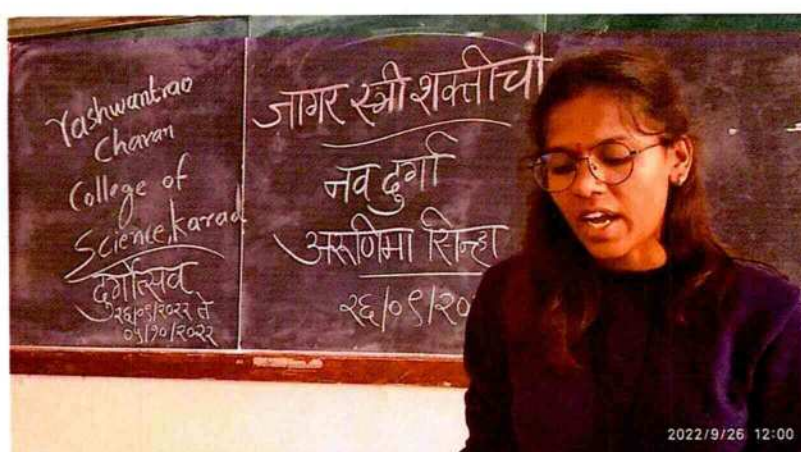 Yashwantrao
Chavan
College of
Science, Karad
दुर्गोत्सव
२६/०९/२०२२ ते
०५/१०/२०२२
जागर स्त्री शक्तीचा
नव दुर्गा
अरुणिमा सिन्हा
२६/०९/२०
2022/9/26 12:00